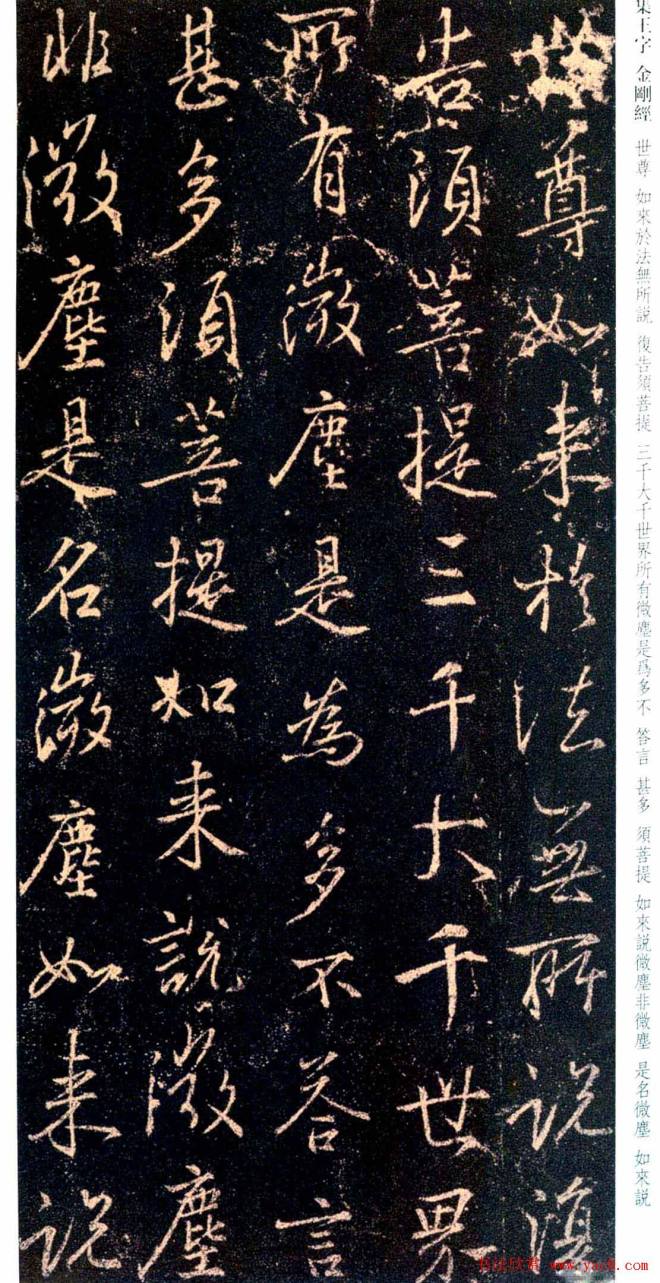 集王字 金剛經 世尊 如來於法無所説 復告須菩提 三千大千世界所有微塵是爲多不 答言 甚多 須菩提 如來説微塵非微塵 是名微塵 如來説
世尊如来於法無所説復
告須菩提三千大千世界
所有微塵是為多不答言
甚多須菩提如来說微塵
非微塵是名微塵如来説
书法欣赏 www.yac8.com